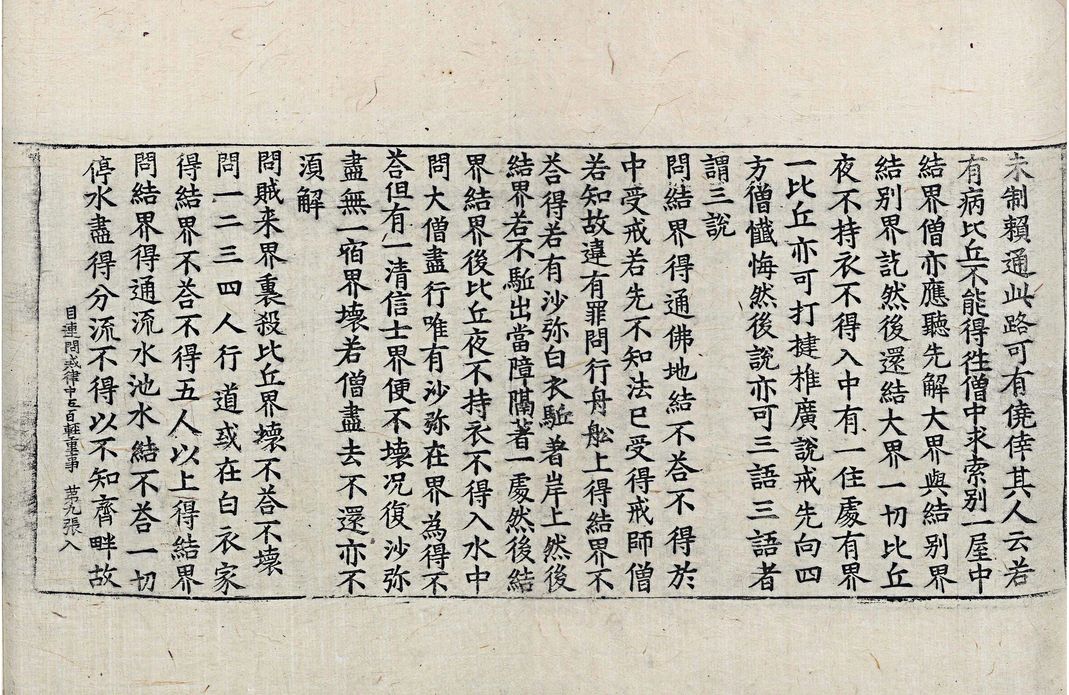 未制賴通此路可有僥倖其人云若
有病比丘不能得徃僧中求索别一屋中
結界僧亦應聽先解大界與結别界
結别界訖然後還結大界一切比丘
夜不持衣不得入中有一住處有界
一比丘亦可打揵椎廣說戒先向四
方僧懺悔然後說亦可三語三語者
謂三說
問結界得通佛地結不荅不得於
中受戒若先不知法已受得戒師僧
若知故違有罪問行舟舩上得結界不
荅得若有沙弥白衣駈著岸上然後
結界若不駈出當障隔著一處然後結
界結界後比丘夜不持衣不得入水中
問大僧盡行唯有沙弥在界為得不
荅但有一清信士界便不壞况復沙弥
盡無一宿界壞若僧盡去不還亦不
湏解
問賊来界裏殺比丘界壞不荅不壞
問一二三四人行道或在白衣家
得結界不荅不得五人以上得結界
問結界得通流水池水結不荅一切
停水盡得分流不得以不知齊畔故
目連問戒律中五百輕重事　苐九張　入